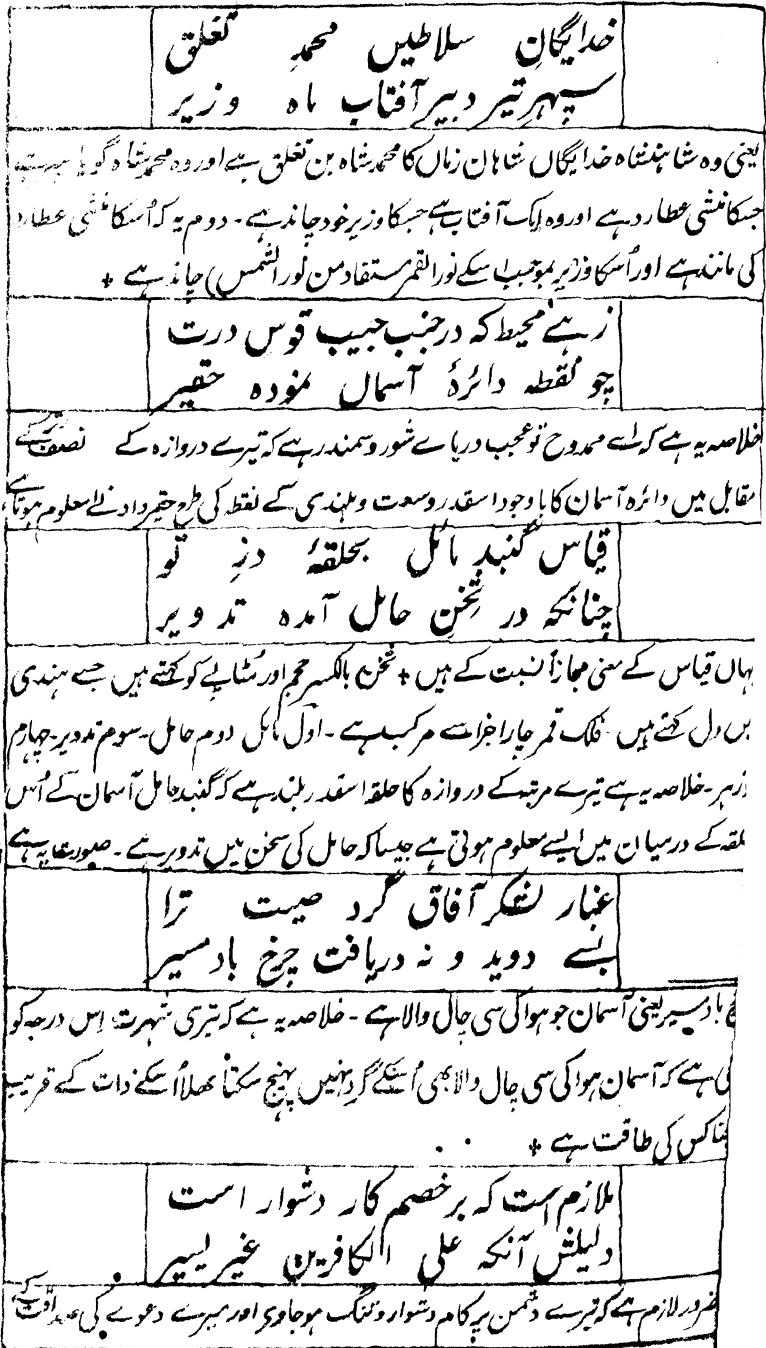 خدایگانِ سلاطیں محمدِ تغلق
سپہرِ تیر دبیر آفتاب ماہ وزیر
یعنی وہ شاہنشاہ خدایگاں شاہان زماں کا محمد شاہ بن تغلق ہے اور وہ محمد شاہ گویا سپہر ہے
جسکا منشی عطارد ہے اور وہ ایک آفتاب ہے جسکا وزیر خود چاند ہے۔ دوم یہ کہ اُسکا منشی عطارد
کی مانند ہے اور اُسکا وزیر بموجب اسکے نور القمر مستفاد من نور الشمس) چاند ہے +
زہے محیط کہ در جنب جیب قوس درت
چو نقطہ دائرۂ آسماں نمودہ حقیر
خلاصہ یہ ہے کہ اے ممدوح تو عجب دریاے شور و سمندر ہے کہ تیرے دروازہ کے نصف
مقابل میں دائرہ آسمان کا باوجود اسقدر وسعت و بلندی کے نقطہ کی طرح حقیر و ادنے معلوم ہوتا ہے
قیاس گنبدِ مائل بحلقۂ درِ تو
چنانکہ در ثخنِ حامل آمدہ تدویر
یہاں قیاس کے معنی مجازاً نسبت کے ہیں + ثخن بالکسر حجم اور مُٹاپے کو کہتے ہیں جسے ہندی
میں دل کہتے ہیں۔ فلک قمر چار اجزا سے مرکب ہے۔ اول مائل دوم حامل۔ سوم تدویر۔ چہارم
خلاصہ یہ ہے تیرے مرتبہ کے دروازہ کا حلقہ اسقدر بلند ہے کہ گنبد حامل آسمان کے اُس
حلقہ کے درمیان میں ایسے معلوم ہوتی ہے جیسا کہ حامل کی سخن میں تدویر ہے۔ صورت یہ ہے
غبار لشکر آفاق گرد صیت ترا
بسے دوید و نہ دریافت چرخ باد مسیر
چرخ باد مسیر یعنی آسمان جو ہوا کی سی چال والا ہے۔ خلاصہ یہ ہے کہ تیری شہرت اِس درجہ کو
ہے کہ آسمان ہوا کی سی چال والا بھی اُسکے گرد نہیں پہنچ سکتا بھلا اُسکے ذات کے قریب
کس کی طاقت ہے +
ملازم است کہ بر خصم کار دشوار است
دلیلش آنکہ علی الکافرین غیر یسیر
ضرور لازم ہے کہ تیرے دشمن پر کام دشوار و تنگ ہو جاوی اور میرے دعوے کی صداقت